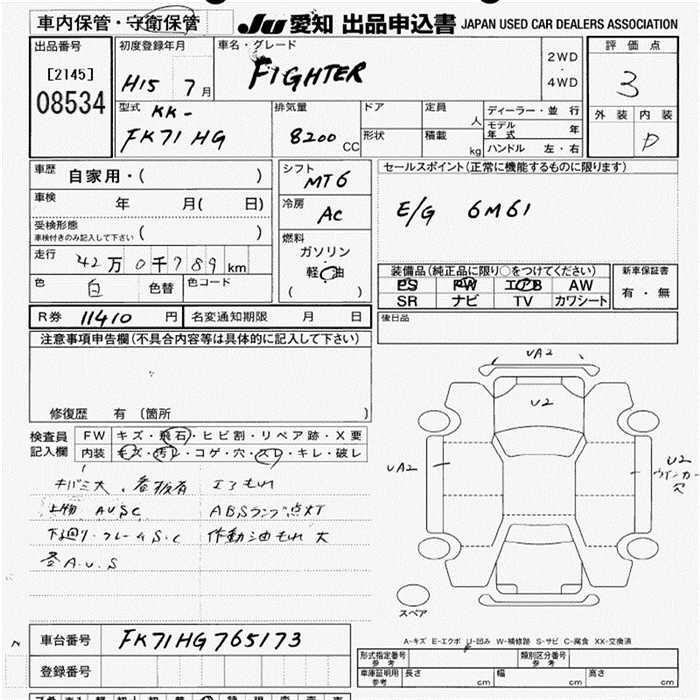 車内保管・守衛保管
JU 愛知 出品申込書 JAPAN USED CAR DEALERS ASSOCIATION
出品番号
[2145]
08534
初度登録年月
H15 7月
車名・グレード
FIGHTER
2WD
・
4WD
評価点
3
外装 内装
D
型式 KK-
FK71HG
排気量
8200 CC
ドア
形状
定員
人
積載
kg
ディーラー・並行
モデル年式 年
ハンドル 左・右
車歴 自家用・( )
車検 年 月( 日)
受検形態
車検付きのみ記入して下さい ( )
走行 42万0千789km
色 白 色替 色コード
シフト
MT6
冷房
AC
燃料
ガソリン
軽油
( )
セールスポイント(正常に機能するものに限ります)
E/G 6M61
装備品(純正品に限り○をつけてください)
PS PW エアB AW
SR ナビ TV カワシート
新車保証書
有・無
R券 11410 円 名変通知期限 月 日
後日品
注意事項申告欄(不具合内容等は具体的に記入して下さい)
修復歴 有 (箇所 )
検査員記入欄
FW キズ・飛石・ヒビ割・リペア跡・X要
内装 キズ・汚レ・コゲ・穴・スレ・キレ・破レ
キバミ大、看板有 エアもれ
上物 AUSC ABSランプ点灯
下廻り・フレームS.C 作動油もれ 大
各A.U.S
UA2
U2
UA2
U2
ウインカー
穴
スペア
A-キズ E-エクボ U-凹み W-補修跡 S-サビ C-腐食 XX-交換済
車台番号 FK71HG765173
登録番号
形式指定番号
参考
類別区分番号
参考
車庫証明用
参考
長さ cm 幅 cm 高さ cm